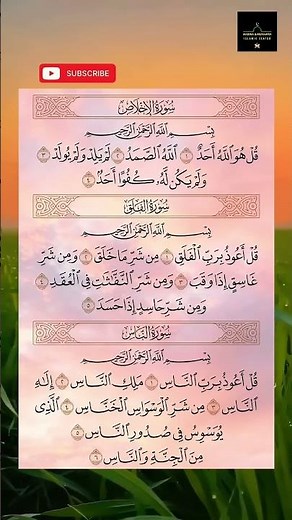 SUBSCRIBE
سُورَةُ الإِخْلَاصِ
بِسْمِ اللَّهِ الرَّحْمَٰنِ الرَّحِيمِ
قُلْ هُوَ ٱللَّهُ أَحَدٌ ١ ٱللَّهُ ٱلصَّمَدُ ٢ لَمْ يَلِدْ وَلَمْ يُولَدْ ٣
وَلَمْ يَكُن لَّهُۥ كُفُوًا أَحَدٌۢ ٤
سُورَةُ الفَلَقِ
بِسْمِ اللَّهِ الرَّحْمَٰنِ الرَّحِيمِ
قُلْ أَعُوذُ بِرَبِّ ٱلْفَلَقِ ١ مِن شَرِّ مَا خَلَقَ ٢ وَمِن شَرِّ
غَاسِقٍ إِذَا وَقَبَ ٣ وَمِن شَرِّ ٱلنَّفَّٰثَٰتِ فِى ٱلْعُقَدِ ٤
وَمِن شَرِّ حَاسِدٍ إِذَا حَسَدَ ٥
سُورَةُ النَّاسِ
بِسْمِ اللَّهِ الرَّحْمَٰنِ الرَّحِيمِ
قُلْ أَعُوذُ بِرَبِّ ٱلنَّاسِ ١ مَلِكِ ٱلنَّاسِ ٢ إِلَٰهِ
ٱلنَّاسِ ٣ مِن شَرِّ ٱلْوَسْوَاسِ ٱلْخَنَّاسِ ٤ ٱلَّذِى
يُوَسْوِسُ فِى صُدُورِ ٱلنَّاسِ ٥
مِنَ ٱلْجِنَّةِ وَٱلنَّاسِ ٦